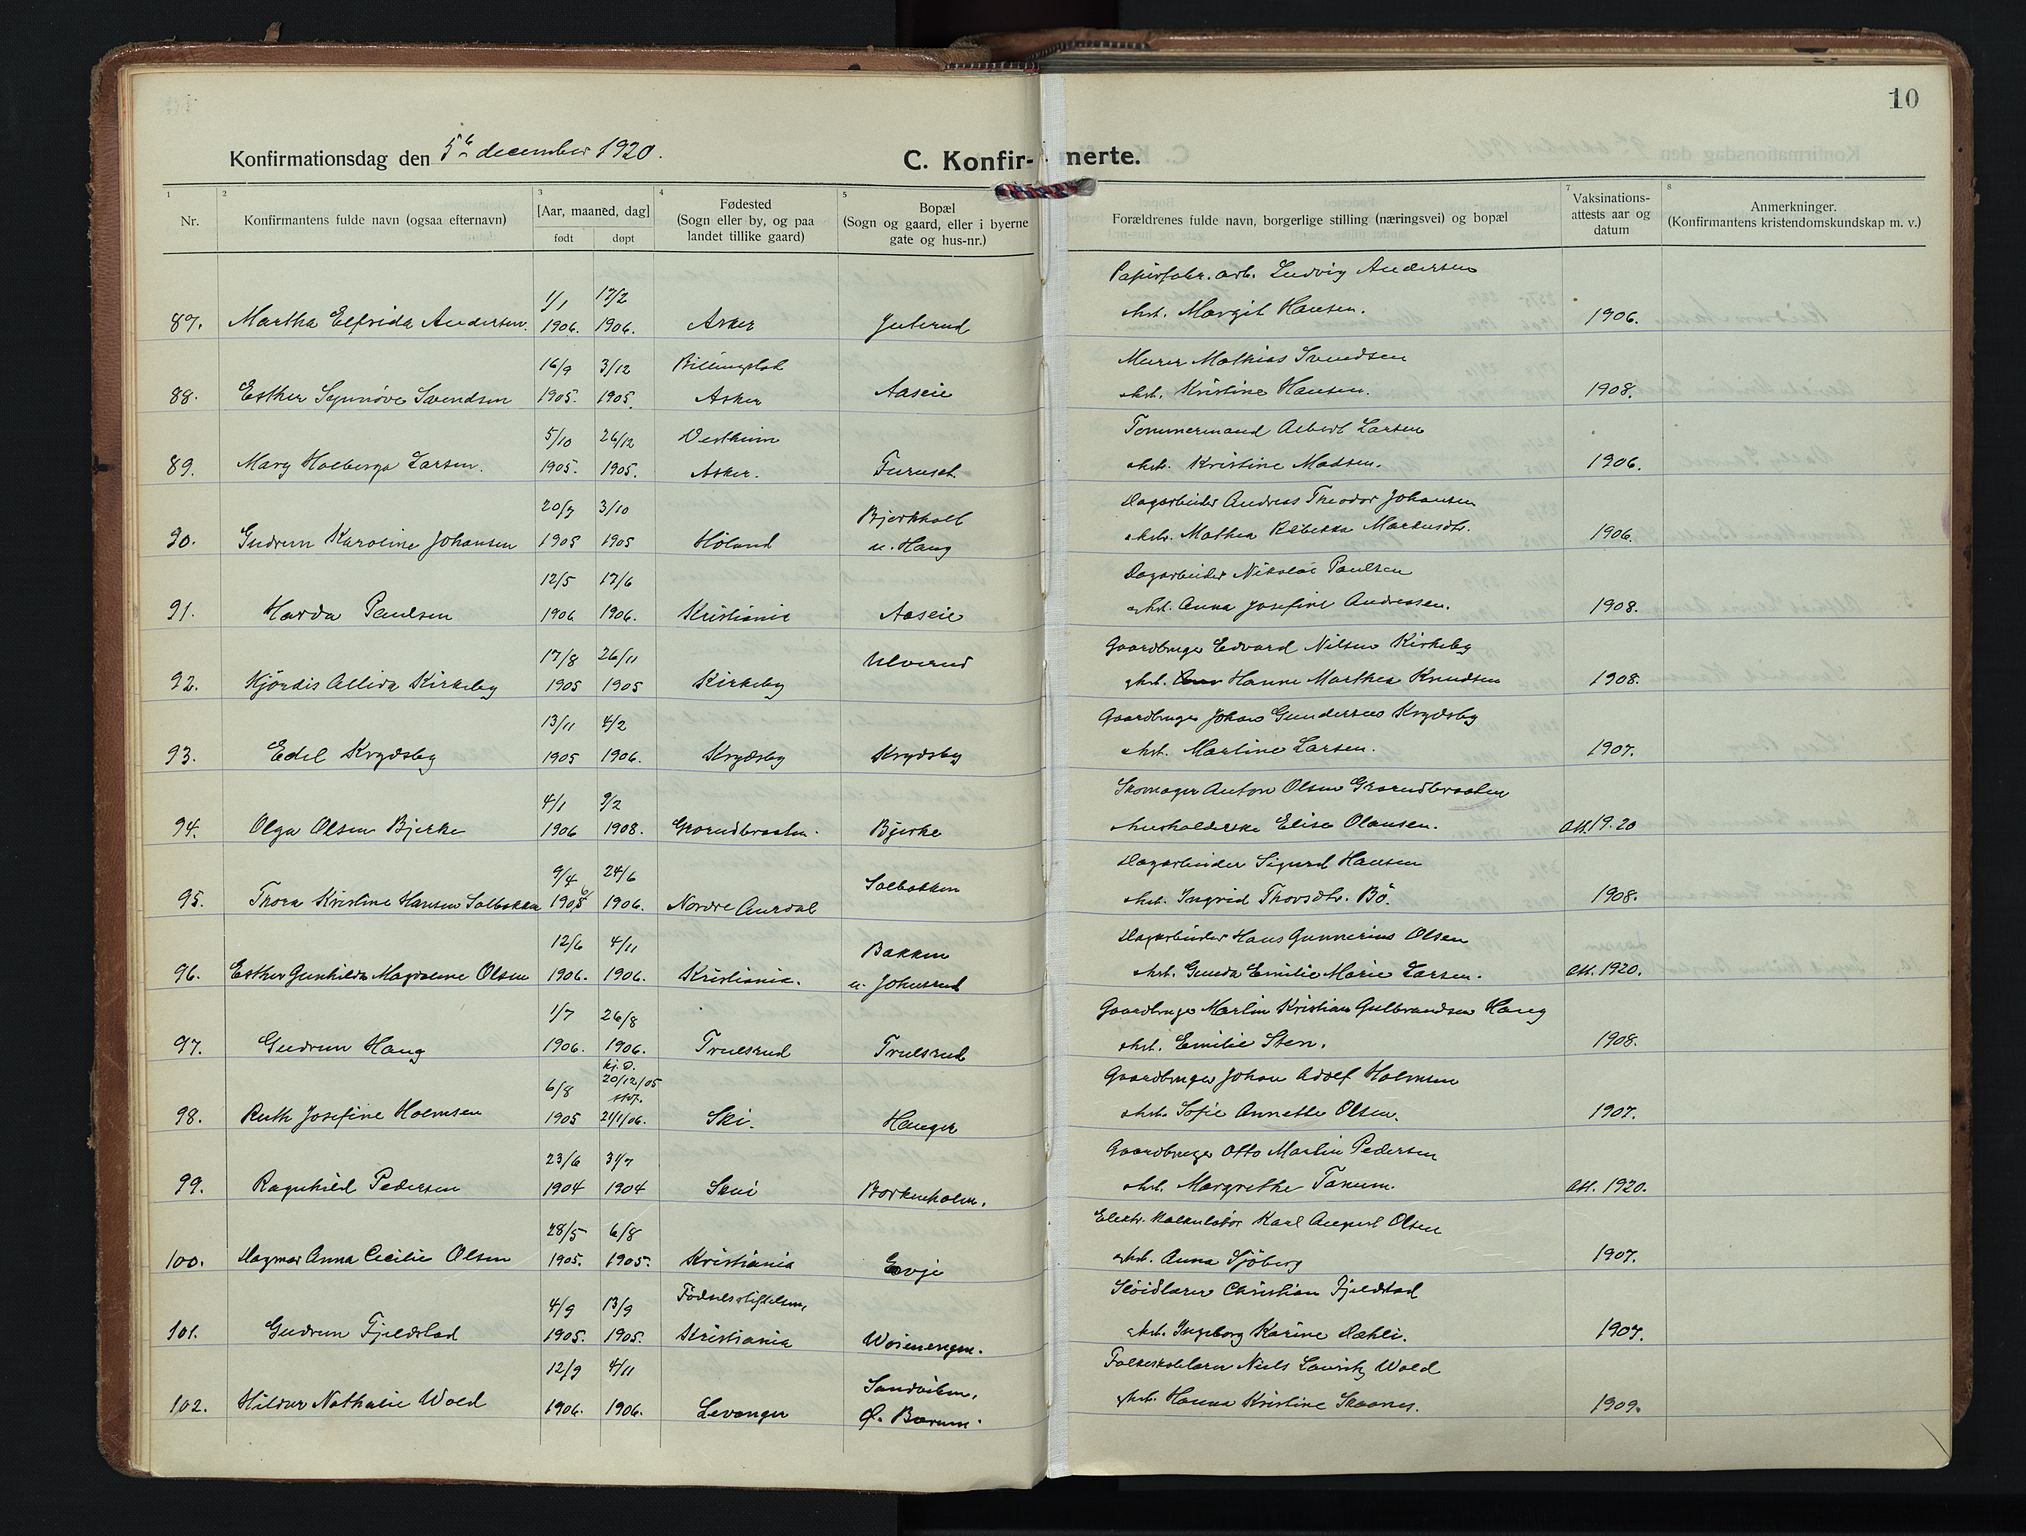 10
Konfirmationsdag den 5te december 1920.
C. Konfirmerte.
1 2 3 4 5 7 8
Nr. Konfirmantens fulde navn (ogsaa efternavn) [Aar, maaned, dag] født døpt Fødested (Sogn eller by, og paa landet tillike gaard) Bopæl (Sogn og gaard, eller i byerne gate og hus-nr.) Forældrenes fulde navn, borgerlige stilling (næringsvei) og bopæl Vaksinations-attests aar og datum Anmerkninger. (Konfirmantens kristendomskundskap m. v.)
1/1 17/2 Papirfabr. arb. Ludvig Andersen
87. Martha Elfrida Andersen. 1906. 1906. Asker Juterud Margit Hansen. 1906.
16/9 3/12 Billingstad Murer Mathias Svendsen
88. Esther Synnøve Svendsen 1905. 1905. Asker Aaseie Kristine Hansen. 1908.
5/10 26/12 Vestheim Tømmermand Albert Larsen
89. Mary Holberga Larsen. 1905. 1905. Asker. Furuset. Kristine Madsen. 1906.
20/7 3/10 Bjerkholt Dagarbeider Andreas Theodor Johansen
90. Gudrun Karoline Johansen 1905 1905 Høland u. Haug Mathea Rebekka Markusdtr. 1906.
12/5 17/6 Dagarbeider Nikolai Paulsen
91. Harda Paulsen 1906 1906. Kristiania Aaseie Anna Josefine Andreasen. 1908.
17/8 26/11 Ulverud Gaardbruger Edvard Nilsen Kirkeby
92. Hjørdis Allida Kirkeby 1905 1905 Kirkeby Hanne Marthea Knudsen 1908.
13/11 4/2 Gaardbruger Johan Gundersen Krydsby
93. Edel Krydsby 1905 1906. Krydsby Krydsby Martine Larsen. 1907.
4/1 9/2 Skomager Anton Olsen
94. Olga Olsen Bjerke 1906 1908. Bjerke husholderske Elise Olausen. Att. 1920
9/4 24/6 Solbakken Dagarbeider Sigurd Hansen
95. Thora Kristine Hansen Solbakken 1906. Nordre Aurdal Ingrid Thorsdtr. Bö. 1908.
12/6 4/11 Bakken Dagarbeider Hans Gunnerius Olsen
96. Esther Gunhilda Magdalene Olsen 1906. 1906. Kristiania. u. Johnsrud Gunda Emilie Marie Larsen. Att. 1920.
1/7 26/8 Gaardbruger Martin Kristian Gulbrandsen Haug
97. Gudrun Haug 1906. 1906. Trulsrud Trulsrud Emilie Sten. 1908.
6/8 kj. D. 20/12/05 stdf. Gaardbruger Johan Adolf Holmsen
98. Ruth Josefine Holmsen 1905 21/1/06. Ski. Hauger Sofie Annette Olsen. 1907.
23/6 31/7 Gaardbruger Otto Martin Pedersen
99. Ragnhild Pedersen 1904 1904 Skui Borkenholm. Margrethe Tanum. Att. 1920.
28/5 6/8 Elektr. kalkulatør Karl August Olsen
100. Dagmar Anna Cecilie Olsen 1905. 1905. Kristiania Evje Anna Sjöberg 1907.
4/9 13/9 Fødselsstiftelsen, Sløidlærer Christian Fjeldstad
101. Gudrun Fjeldstad 1905. 1905. Kristiania Wøienengen. Ingeborg Karine Dæhli. 1907.
12/9 4/11 Sandviken, Folkeskolelærer Niels Lauritz Wold
102. Hildur Nathalie Wold 1906. 1906. Levanger Ø. Bærum. Hanna Kristine Skaanes. 1909.